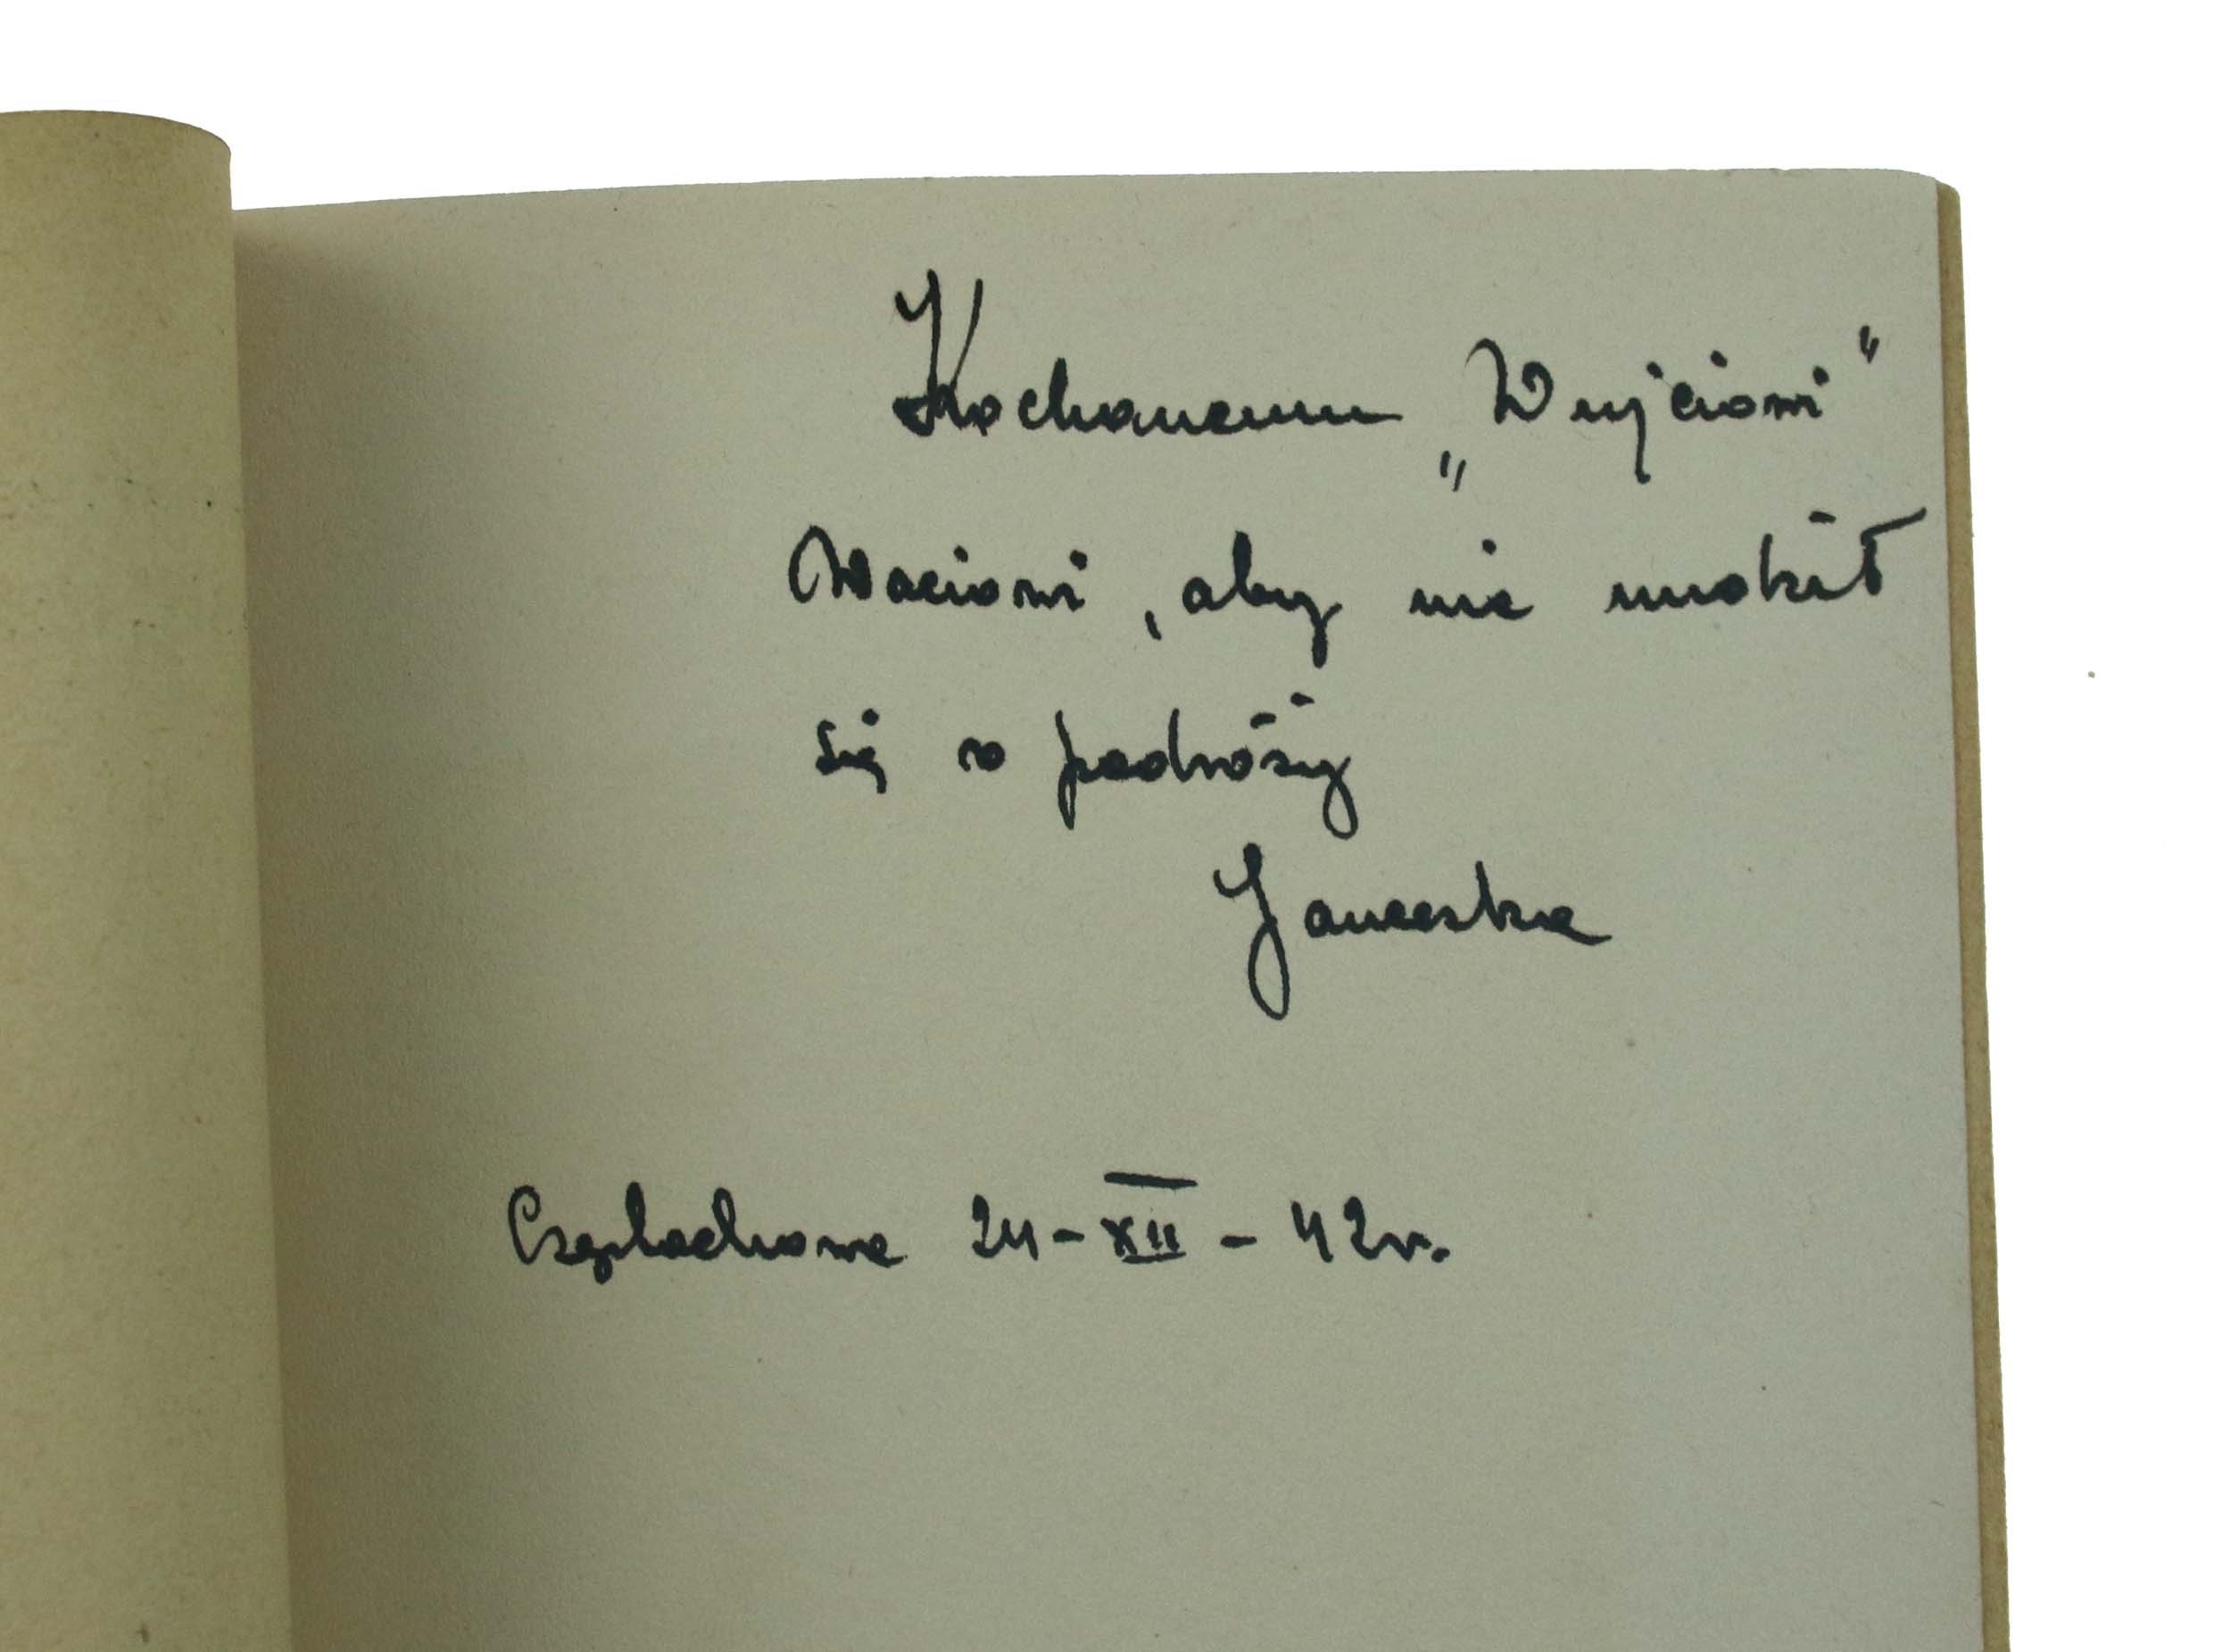 Kochanemu „Wujciowi"
Waciowi, aby nie nudził
się w podróży
Janeczka
Częstochowa 24-XII-42r.